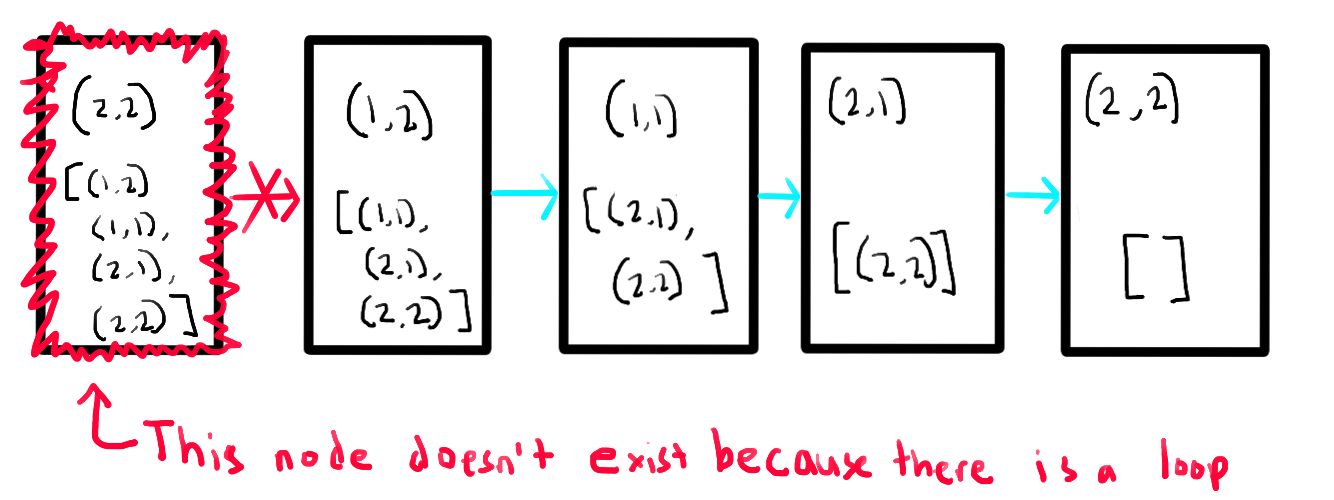 (2,2)
[(1,2)
(1,1),
(2,1),
(2,2)]
(1,2)
[(1,1),
(2,1),
(2,2)]
(1,1)
[(2,1),
(2,2)]
(2,1)
[(2,2)]
(2,2)
[ ]
This node doesn't exist because there is a loop